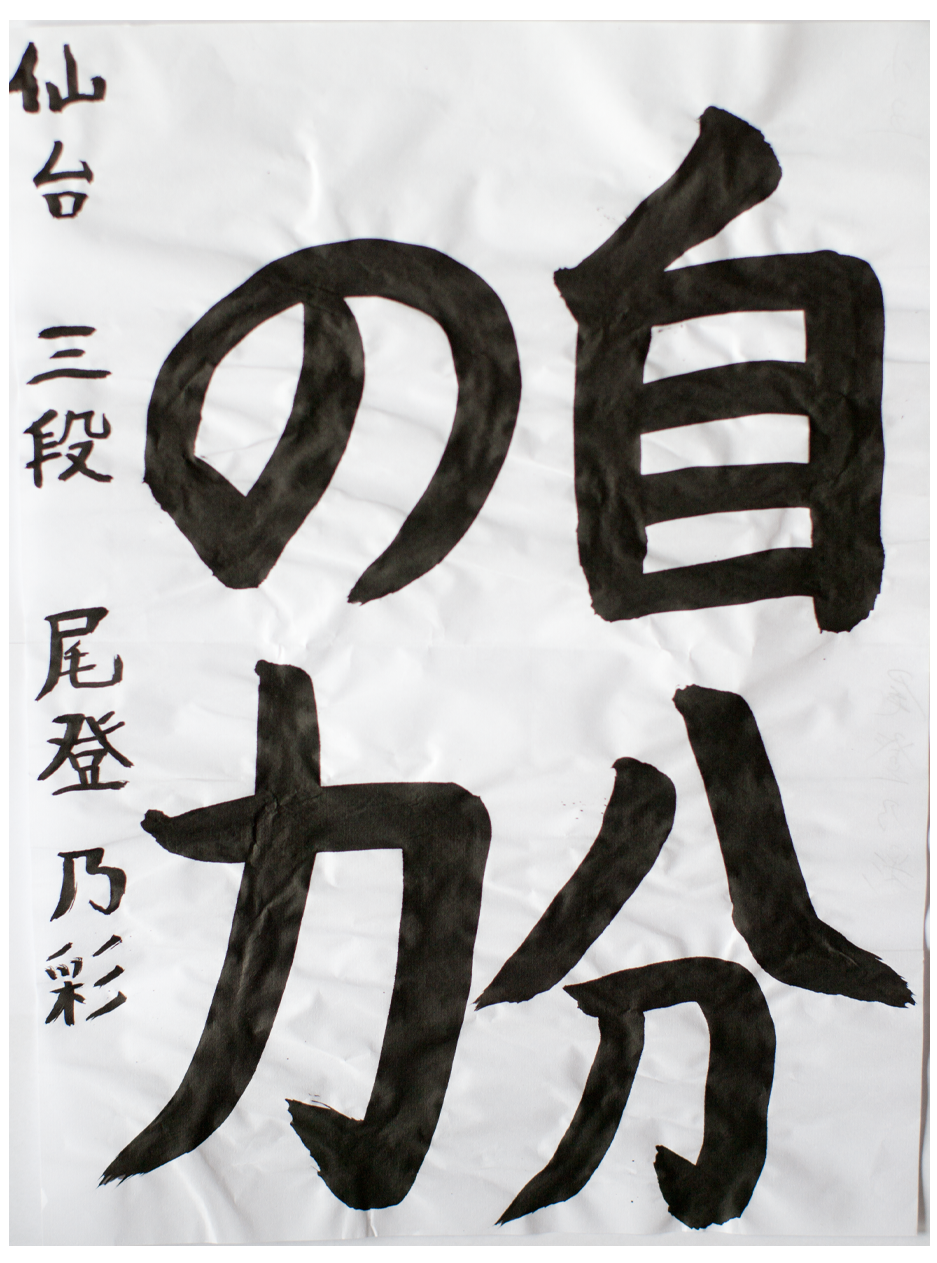 自分
の力
仙台 三段 尾登 乃彩